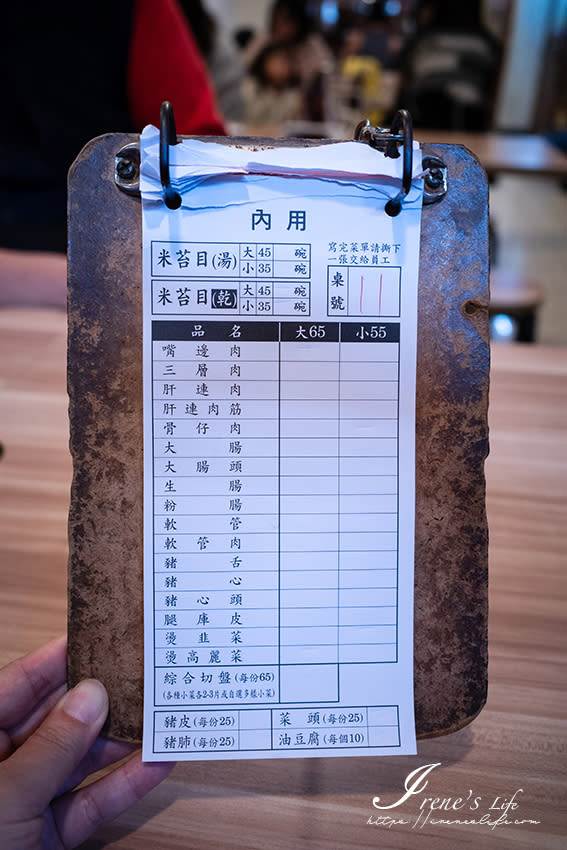 內用
米苔目(湯) 大 45 碗
小 35 碗
寫完菜單請撕下
一張交給員工
米苔目(乾) 大 45 碗
小 35 碗
桌號 11
品名 大65 小55
嘴邊肉
三層肉
肝連肉
肝連肉筋
骨仔肉
大腸
大腸頭
生腸
粉腸
軟管
軟管肉
豬舌
豬心
豬心頭
腿庫皮
燙韭菜
燙高麗菜
綜合切盤(每份65)
(各種小菜各2-3片或自選多樣小菜)
豬皮(每份25) 菜頭(每份25)
豬肺(每份25) 油豆腐(每個10)
Irene's Life
https://irenelife.com